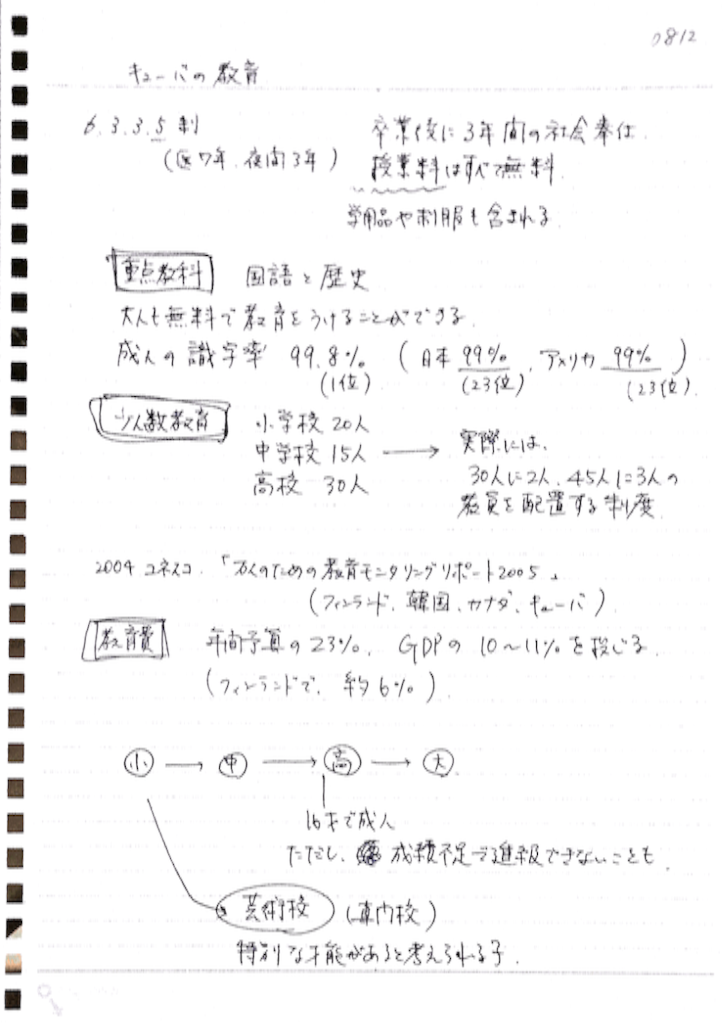 0812
キューバの教育
6.3.3.5制
(医7年、夜間3年)
卒業後に3年間の社会奉仕.
授業料はすべて無料.
学用品や制服も含まれる
重点教科 国語と歴史
大人も無料で教育をうけることができる.
成人の識字率 99.8% (日本 99%、アメリカ 99%)
(1位) (23位) (23位).
少人数教育 小学校 20人
中学校 15人 → 実際には、
高校 30人 30人に2人、45人に3人の
教員を配置する制度.
2004 ユネスコ.「万人のための教育モニタリングリポート2005」
(フィンランド、韓国、カナダ、キューバ)
教育費 年間予算の23%、GDPの10〜11%を投じる.
(フィンランドで、約6%)
小 → 中 → 高 → 大
16才で成人
ただし、成績不足で進級できないことも.
芸術校 (専門校)
特別な才能があると考えられる子.